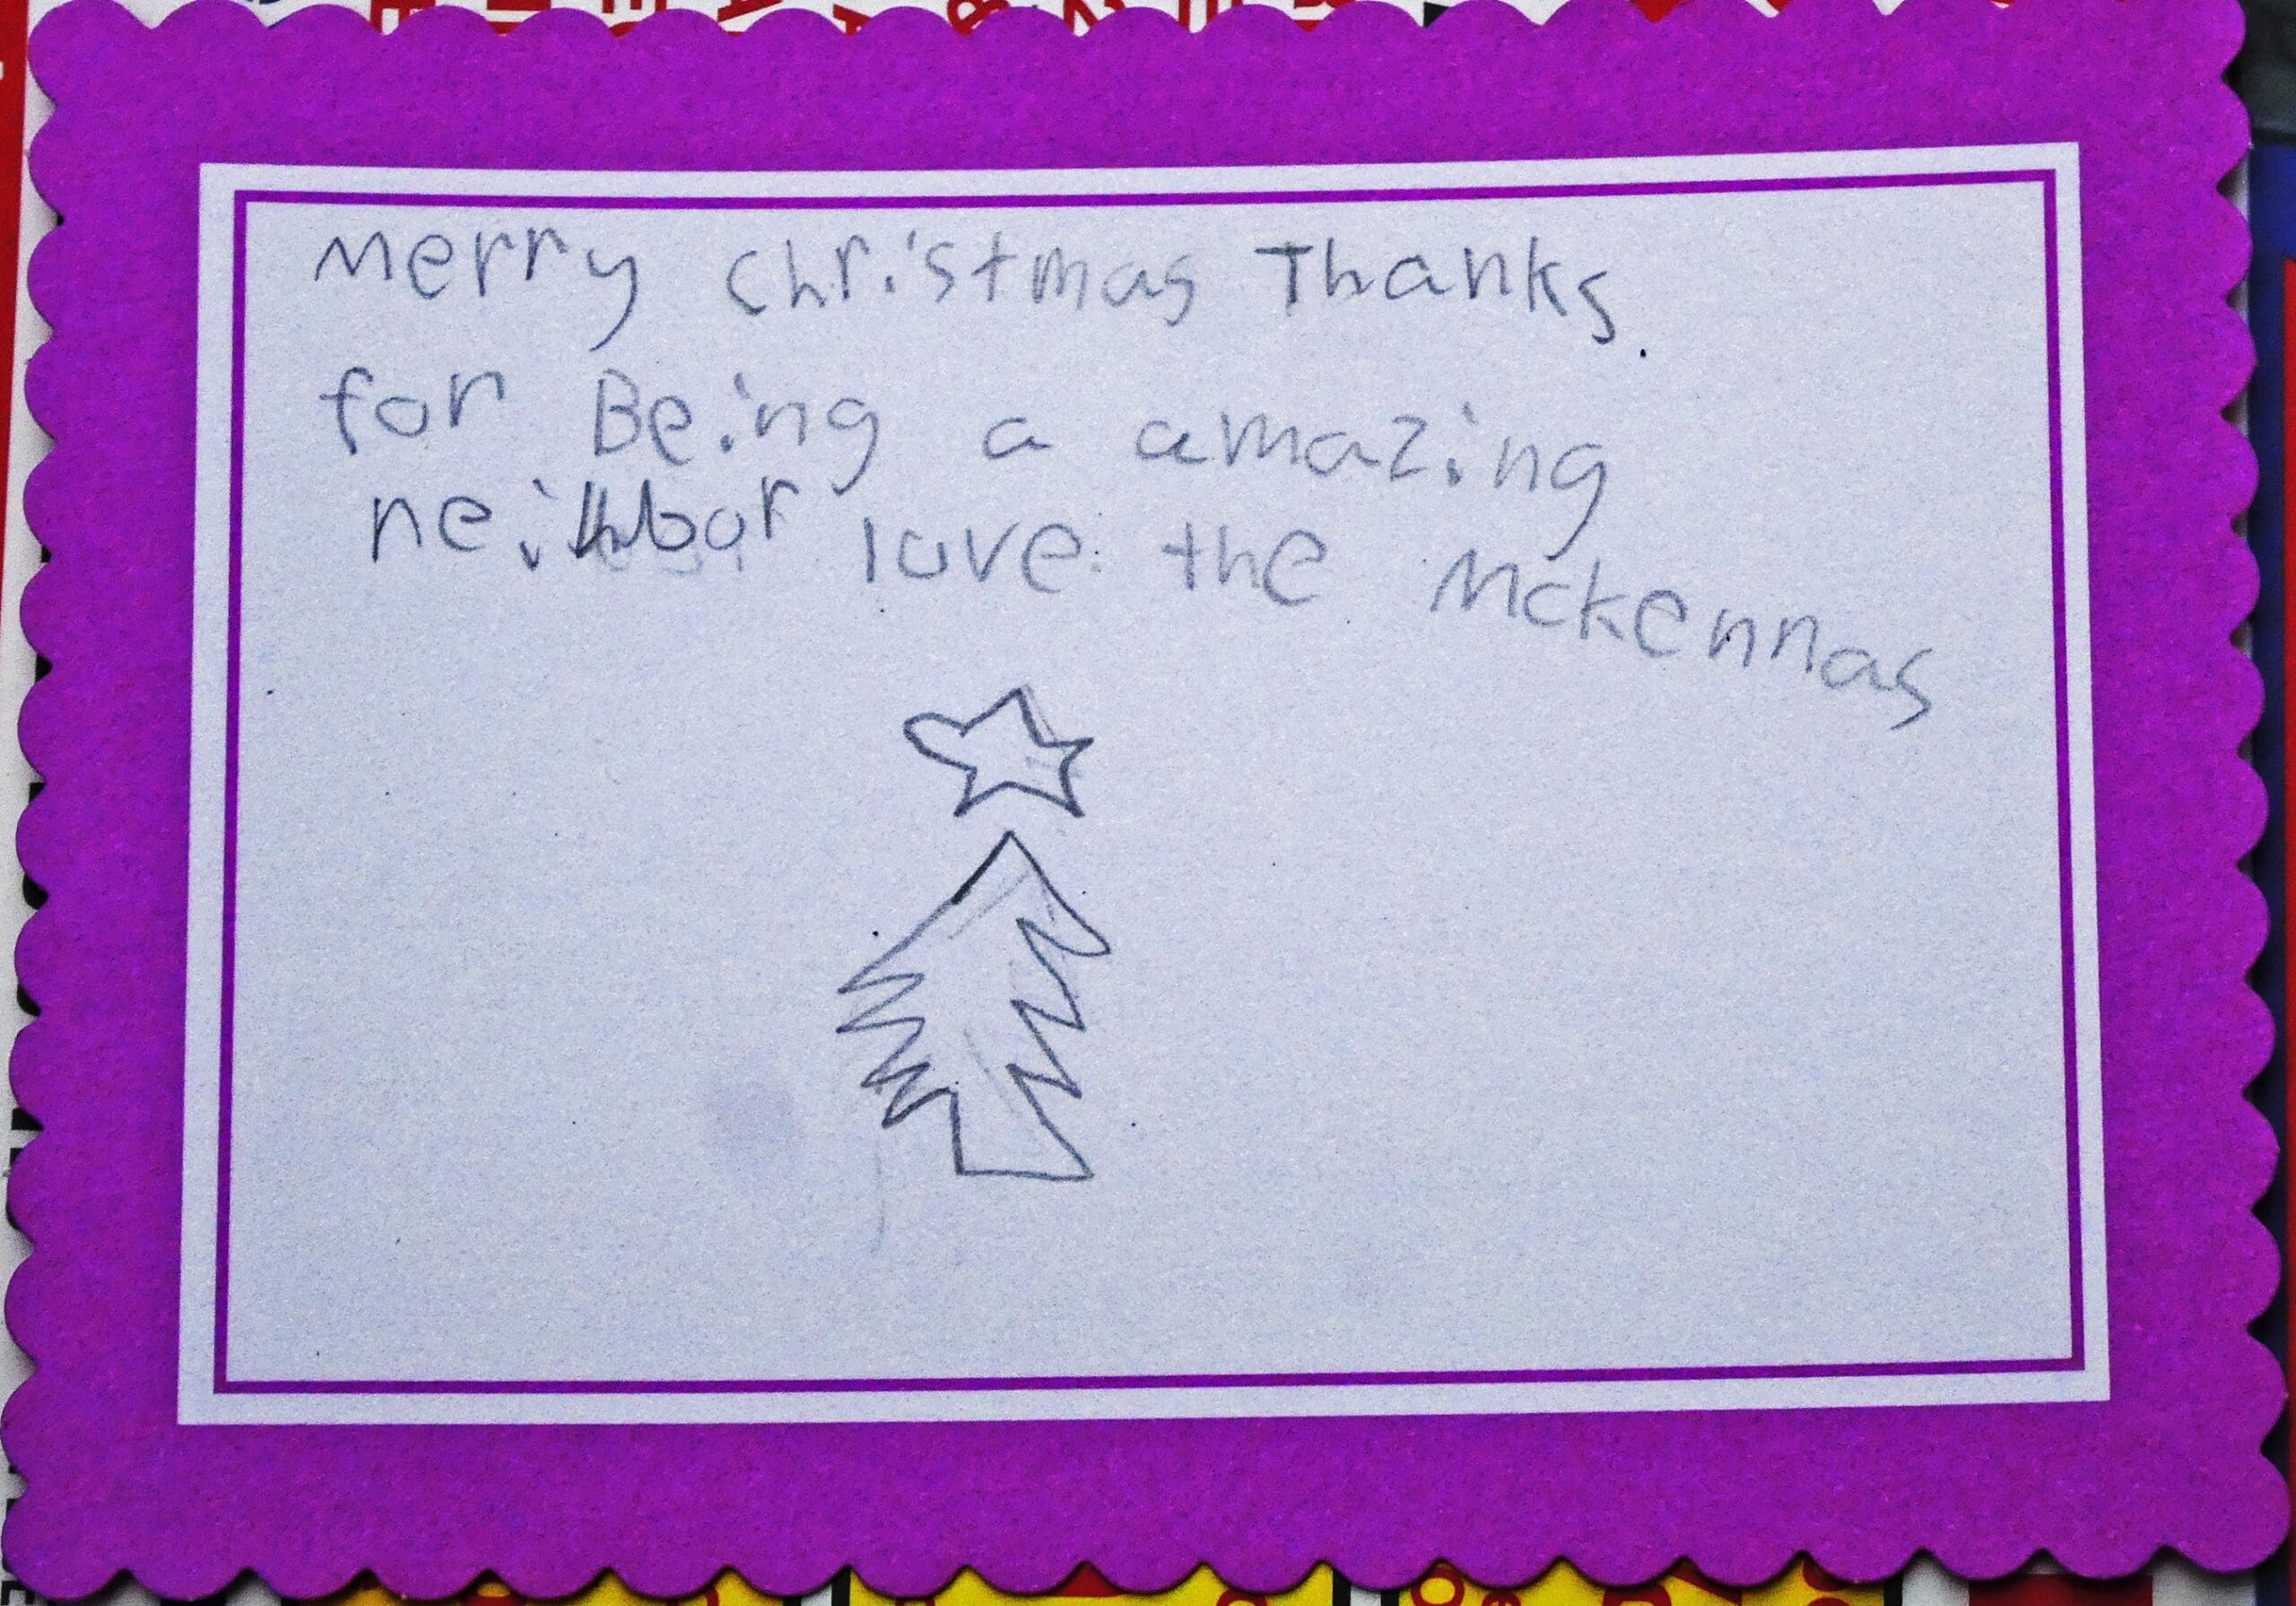 Merry Christmas Thanks
for Being a amazing
neihbor love the Mckennas